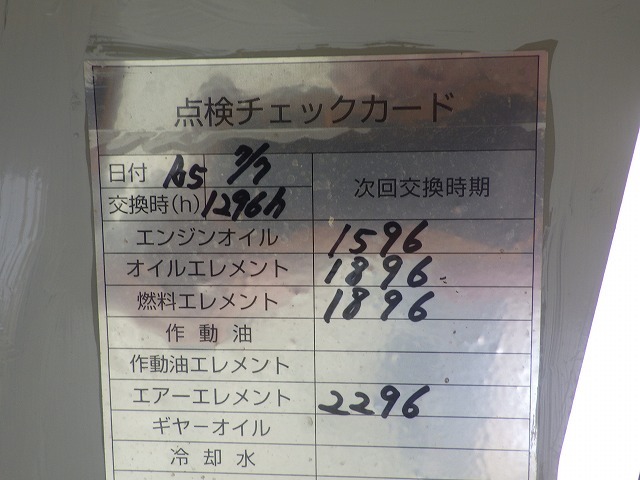 点検チェックカード
日付 R5 7/7
次回交換時期
交換時(h) 1296h
エンジンオイル 1596
オイルエレメント 1896
燃料エレメント 1896
作動油
作動油エレメント
エアーエレメント 2296
ギヤーオイル
冷却水